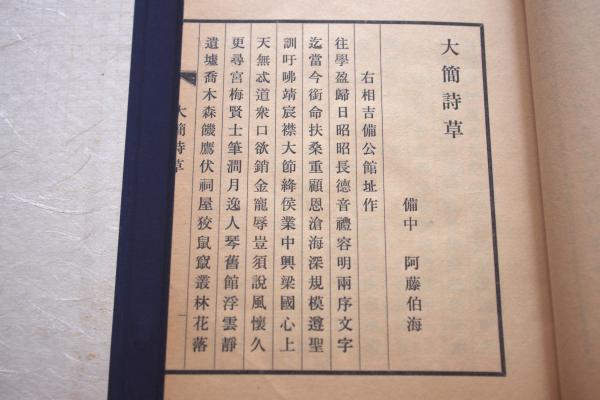 大簡詩草
備中 阿藤伯海
右相吉備公館址作
往學盈歸日昭昭長德音禮容明兩序文字
迄當今銜命扶桑重顧恩滄海深規模遵聖
訓吁咈靖宸襟大節絳侯業中興梁國心上
天無忒道衆口欲銷金寵辱豈須說風懷久
更尋宮梅賢士筆澗月逸人琴舊館浮雲靜
遺墟喬木森饑鷹伏祠屋狡鼠竄叢林花落
大簡詩草